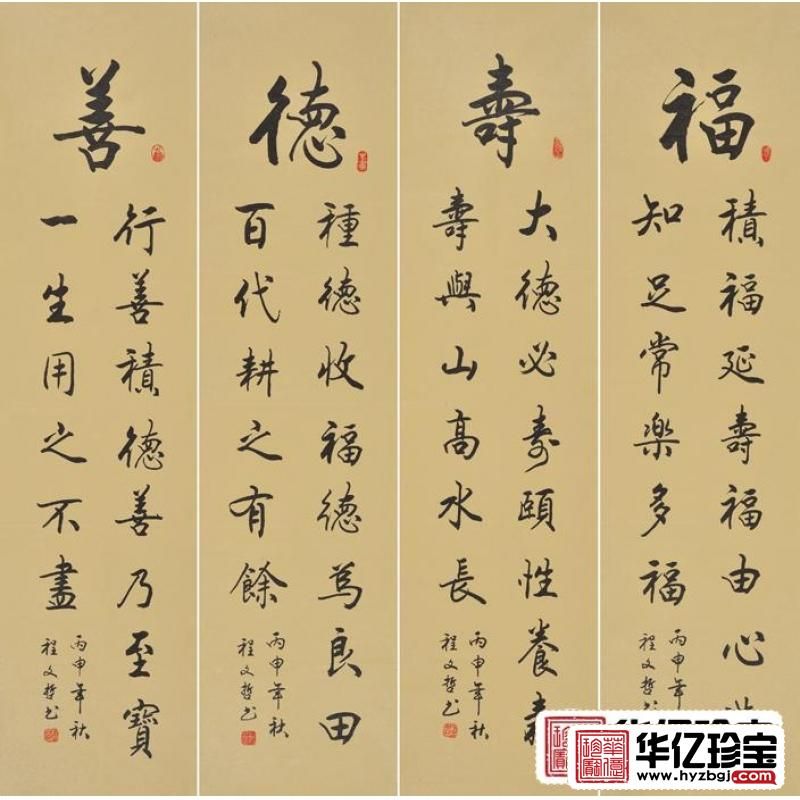 福
積福延壽福由心
知足常樂多福
丙申年
程文哲
壽
大德必壽頤性養壽
壽與山高水長
丙申年秋
程文哲书
德
種德收福德為良田
百代耕之有餘
丙申年秋
程文哲书
善
行善積德善乃至寶
一生用之不盡
丙申年秋
程文哲书
华亿珍宝
www.hyzbgj.com